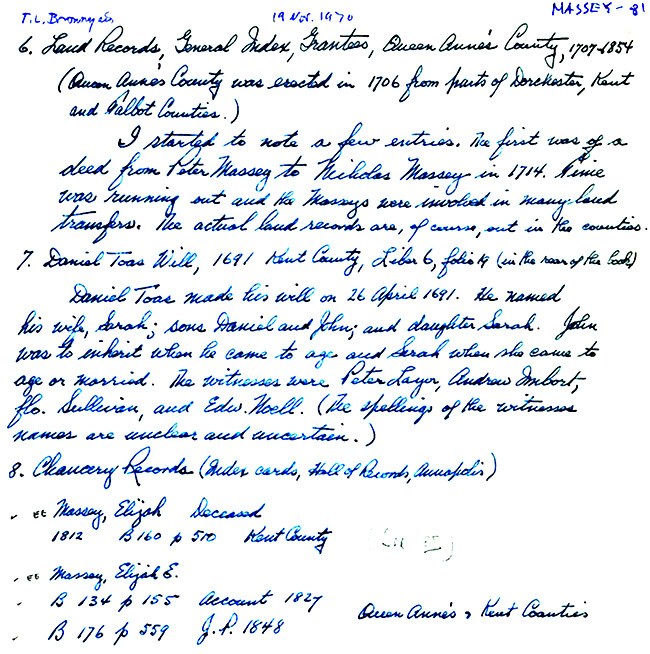 T. L. Bronnyes 19 Nov. 1970 MASSEY - 81
6. Land Records, General Index, Grantees, Queen Anne's County, 1707-1854
(Queen Anne's County was erected in 1706 from parts of Dorchester, Kent
and Talbot Counties.)
I started to note a few entries. The first was of a
deed from Peter Massey to Nicholas Massey in 1714. Time
was running out and the Masseys were involved in many land
transfers. The actual land records are, of course, out in the counties.
7. Daniel Toas Will, 1691 Kent County, Liber 6, folio 19 (in the rear of the book)
Daniel Toas made his will on 26 April 1691. He named
his wife, Sarah; sons Daniel and John; and daughter Sarah. John
was to inherit when he came to age and Sarah when she came to
age or married. The witnesses were Peter Layor, Andrew Imbort,
flo. Sullivan, and Edw. Noell. (The spellings of the witnesses
names are unclear and uncertain.)
8. Chancery Records (Index cards, Hall of Records, Annapolis)
EE Massey, Elijah Deceased
1812 B 160 p 510 Kent County
EE Massey, Elijah E.
B 134 p 155 Account 1827 Queen Anne's & Kent Counties
B 176 p 559 J. P. 1848